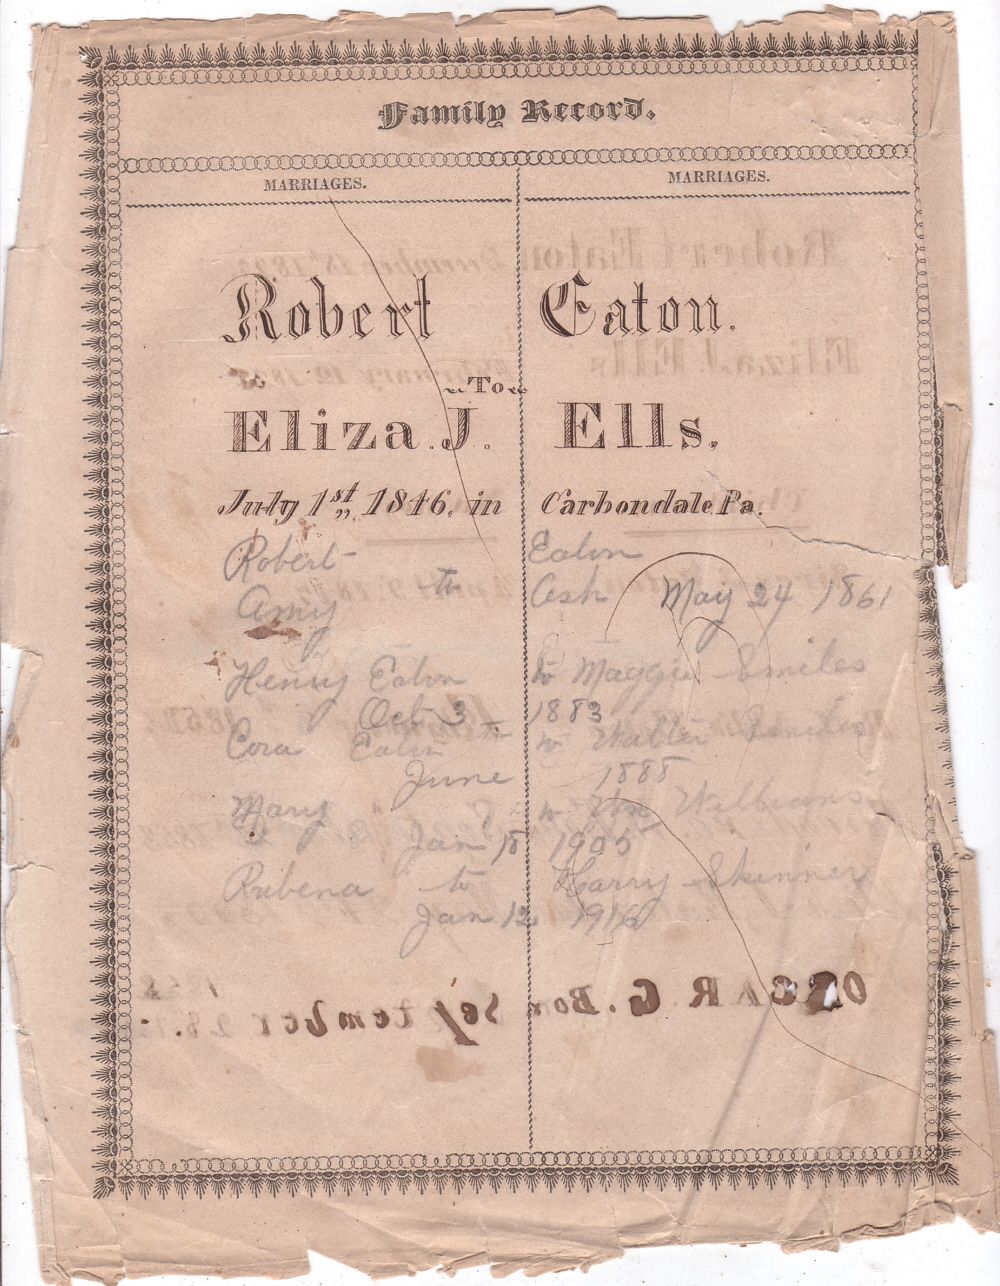 Family Record.
MARRIAGES. MARRIAGES.
Robert Eaton.
To
Eliza. J. Ells.
July 1st, 1846, in Carbondale Pa.
Robert Eaton
Amy to Ash May 24 1861
Henry Eaton to Maggie Smiles
Oct 3 1883
Cora Eaton to Smiles
June 1888
Mary to Williams
Jan 18 1905
Rubena to Harry Skinner
Jan 12 1916
OSCAR. G. Born September 28.